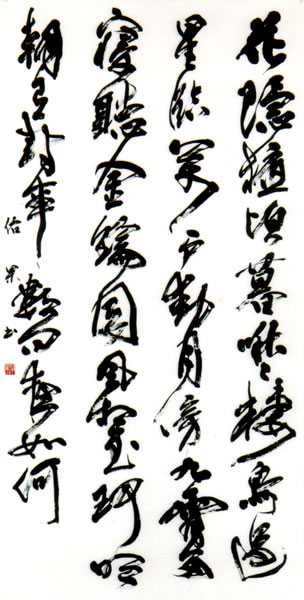 花隱掖垣暮啾々棲鳥過
星臨萬戶動月傍九霄多
寢聽金鑰因風想玉珂明
朝有封事數問夜如何
果书